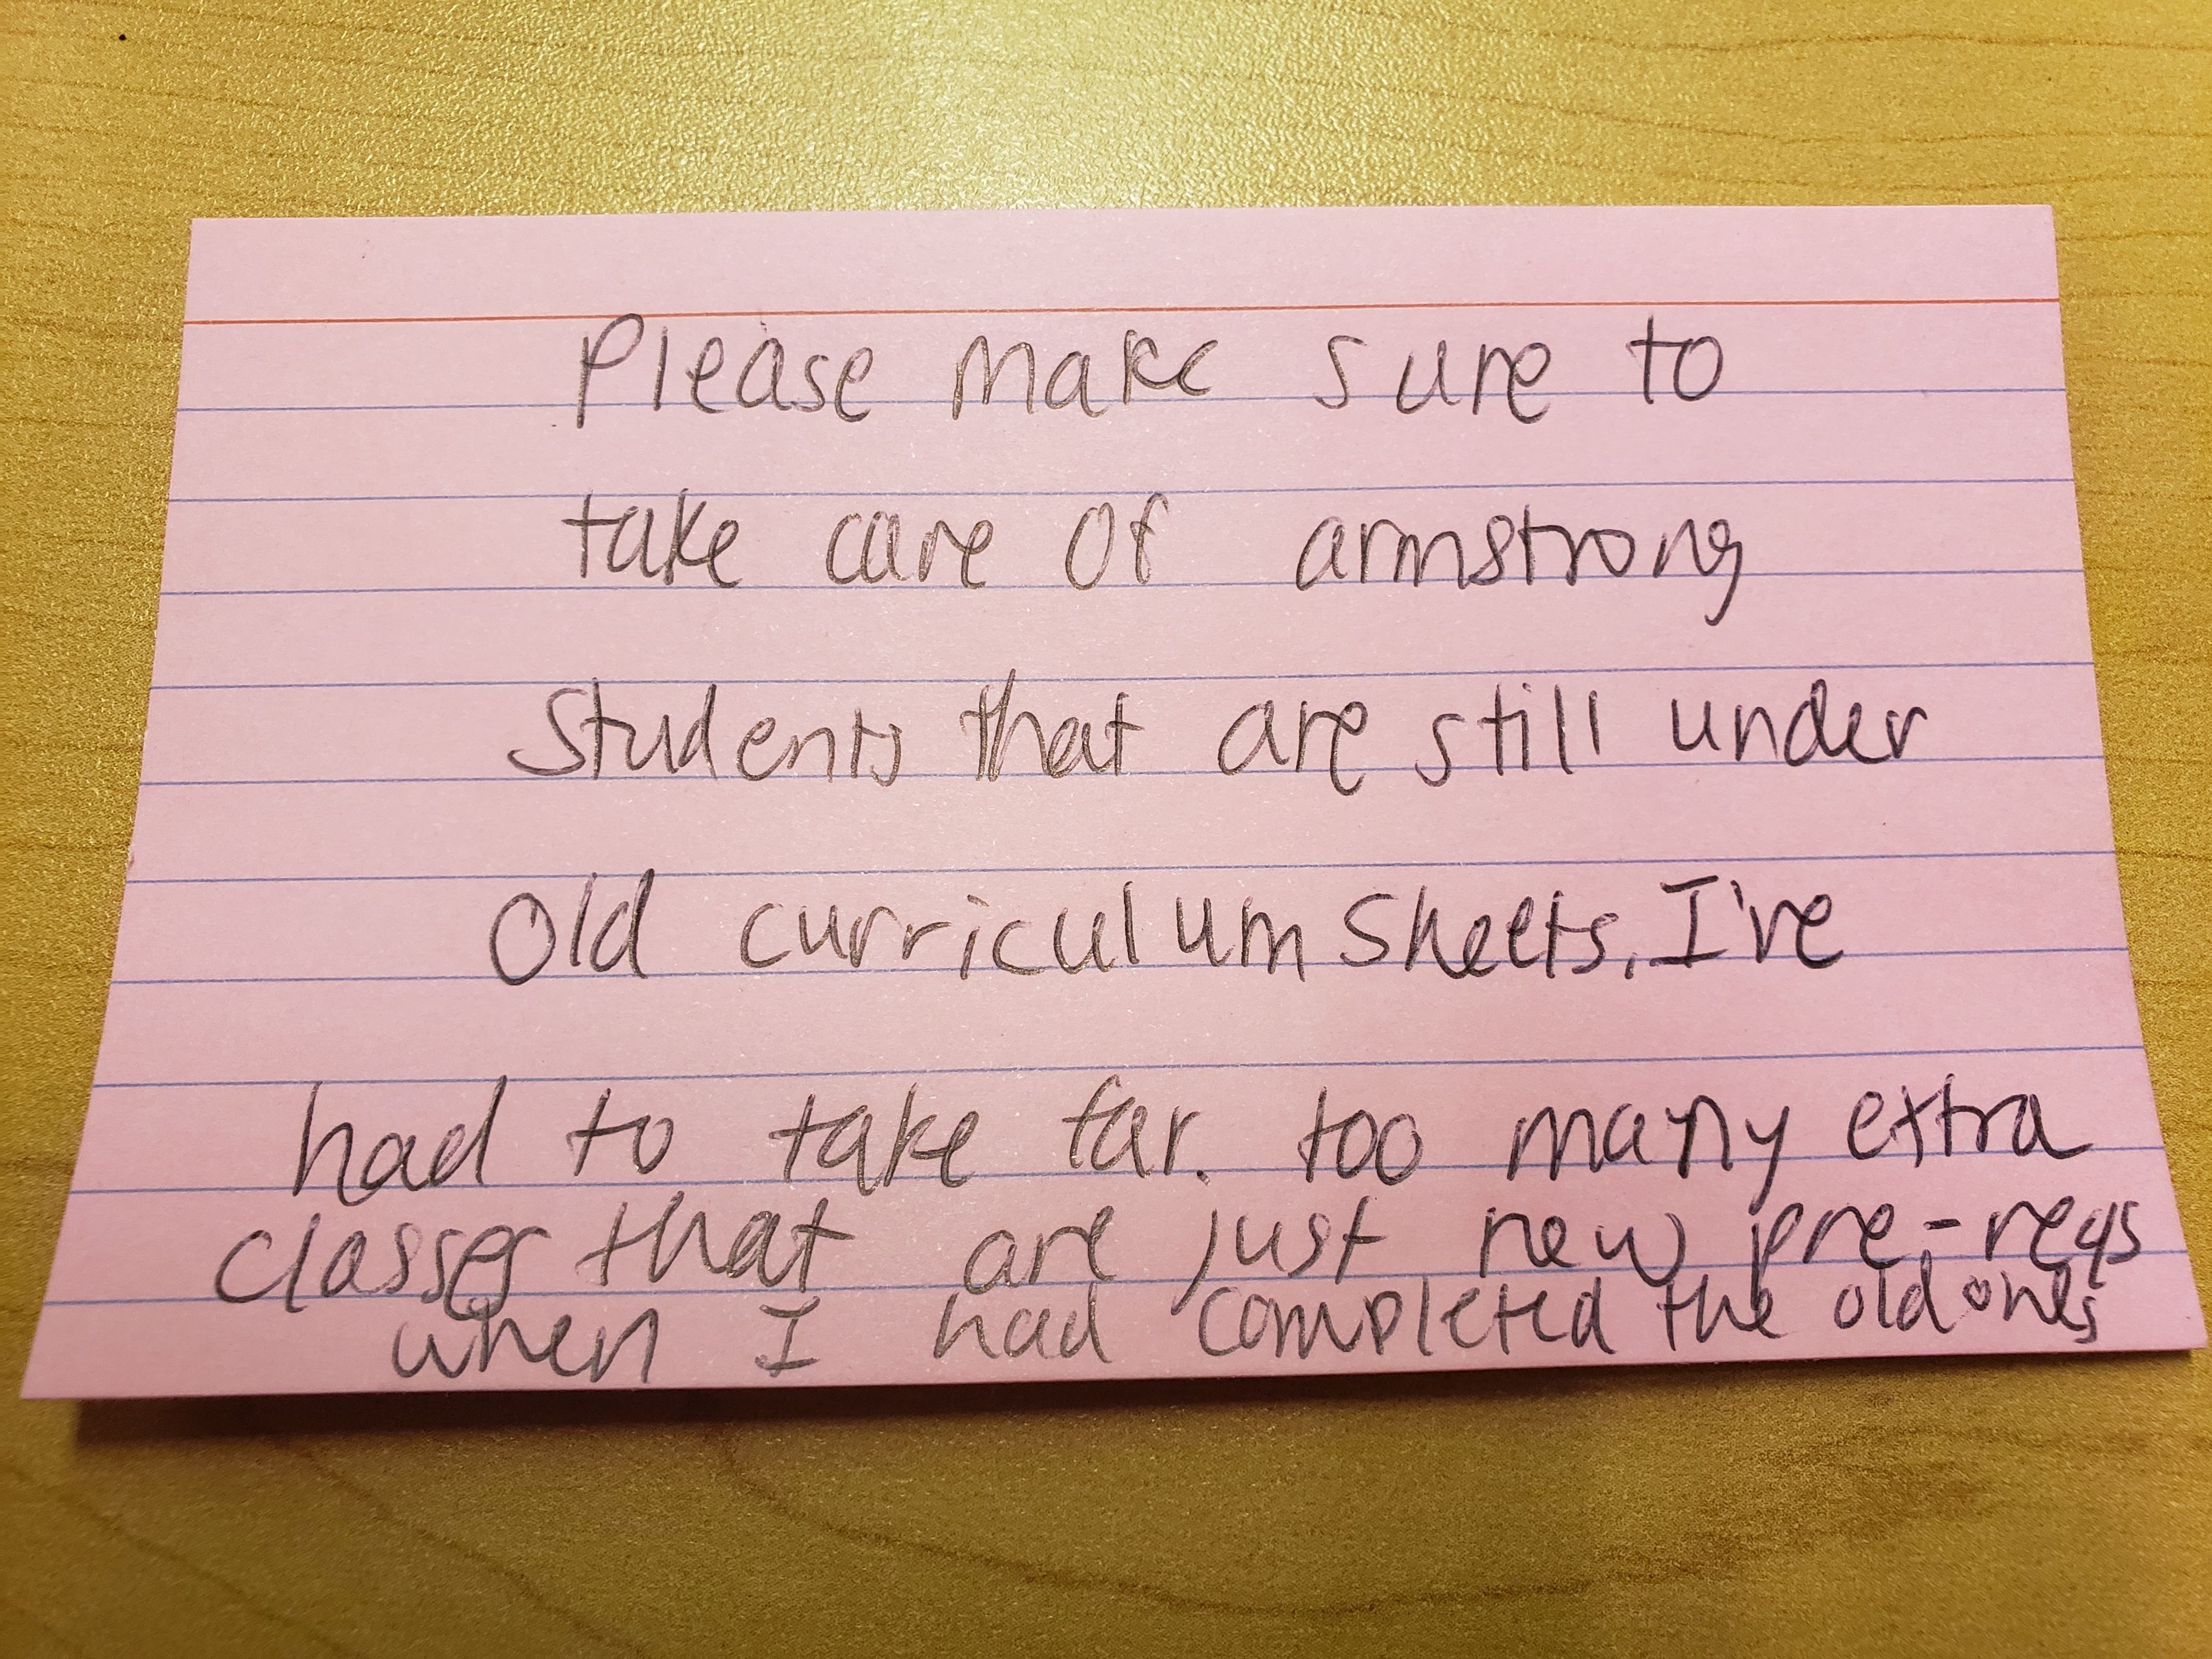 Please make sure to
take care of armstrong
Students that are still under
Old curriculum sheets. I've
had to take far. too many extra
classes that are just new pre-reqs
when I had completed the old ones